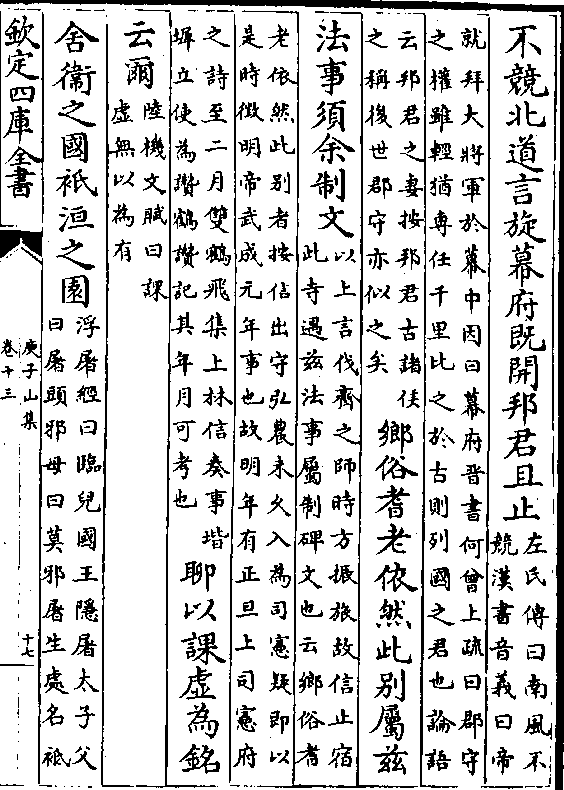 不競北道言旋幕府既開邦君且止
左氏傳曰南風不
競漢書音義曰帝
就拜大將軍於幕中因曰幕府晉書何曾上疏曰郡守
之權雖輕猶専任千里比之於古則列國之君也論語
云邦君之妻按邦君古諸侯
之稱後世郡守亦似之矣
鄉俗耆老依然此別屬兹
法事須余制文
以上言伐齊之師時方振旅故信止宿
此寺遇兹法事屬制碑文也云鄉俗耆
老依然此別者按信出守弘農未久入為司憲疑即以
是時徴明帝武成元年事也故明年有正旦上司憲府
之詩至二月雙鶴飛集上林信奏事堦
墀立使為讚鶴讚記其年月可考也
聊以課虛為銘
云爾
陸機文賦曰課
虛無以為有
舍衛之國祇洹之園
浮屠經曰臨兒國王隱屠太子父
曰屠頭邪母曰莫邪屠生處名祇
欽定四庫全書
庾子山集
卷十三
十七